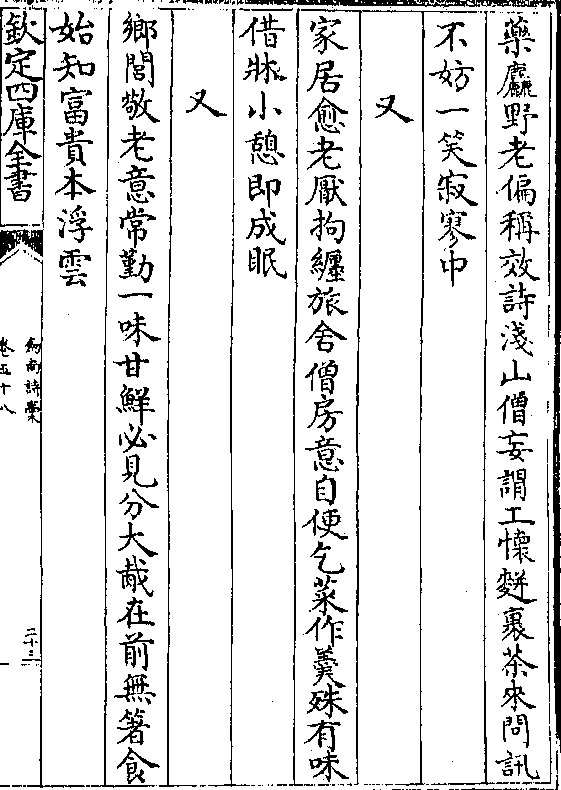 藥麤野老偏稱效詩淺山僧妄謂工懷餅裹茶來問訊
不妨一笑寂寥中
又
家居愈老厭拘纏旅舍僧房意自便乞菜作羹殊有味
借牀小憩即成眠
又
鄉閭敬老意常勤一味甘鮮必見分大胾在前無箸食
始知富貴本浮雲
欽定四庫全書
劒南詩槀
卷五十八
二十三